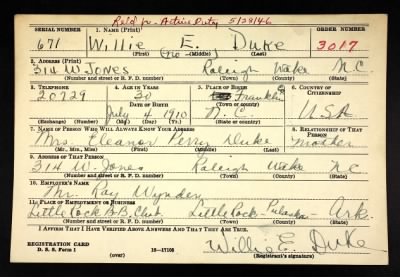 Reld fr - Active Duty 5/28/46
SERIAL NUMBER 1. NAME (Print) ORDER NUMBER
671 Willie E. Duke 3017
(First) (no) (Middle) (Last)
2. ADDRESS (Print)
314 W Jones Raleigh Wake N C.
(Number and street or R. F. D. number) (Town) (County) (State)
3. TELEPHONE 4. AGE IN YEARS 5. PLACE OF BIRTH 6. COUNTRY OF CITIZENSHIP
20729 30 Franklin
DATE OF BIRTH (Town or county)
July 4 1910 N. C USA
(Exchange) (Number) (Mo.) (Day) (Yr.) (State or country)
7. NAME OF PERSON WHO WILL ALWAYS KNOW YOUR ADDRESS 8. RELATIONSHIP OF THAT PERSON
Mrs Eleanor Perry Duke mother
(Mr., Mrs., Miss) (First) (Middle) (Last)
9. ADDRESS OF THAT PERSON
314 W. Jones Raleigh Wake N C
(Number and street or R. F. D. number) (Town) (County) (State)
10. EMPLOYER'S NAME
Mr. Ray Wynder
11. PLACE OF EMPLOYMENT OR BUSINESS
Little Rock B.B. Club Little Rock - Pulaska - Ark.
(Number and street or R. F. D. number) (Town) (County) (State)
I AFFIRM THAT I HAVE VERIFIED ABOVE ANSWERS AND THAT THEY ARE TRUE.
REGISTRATION CARD
D. S. S. Form 1 (over) 16-17105 Willie E. Duke
(Registrant's signature)